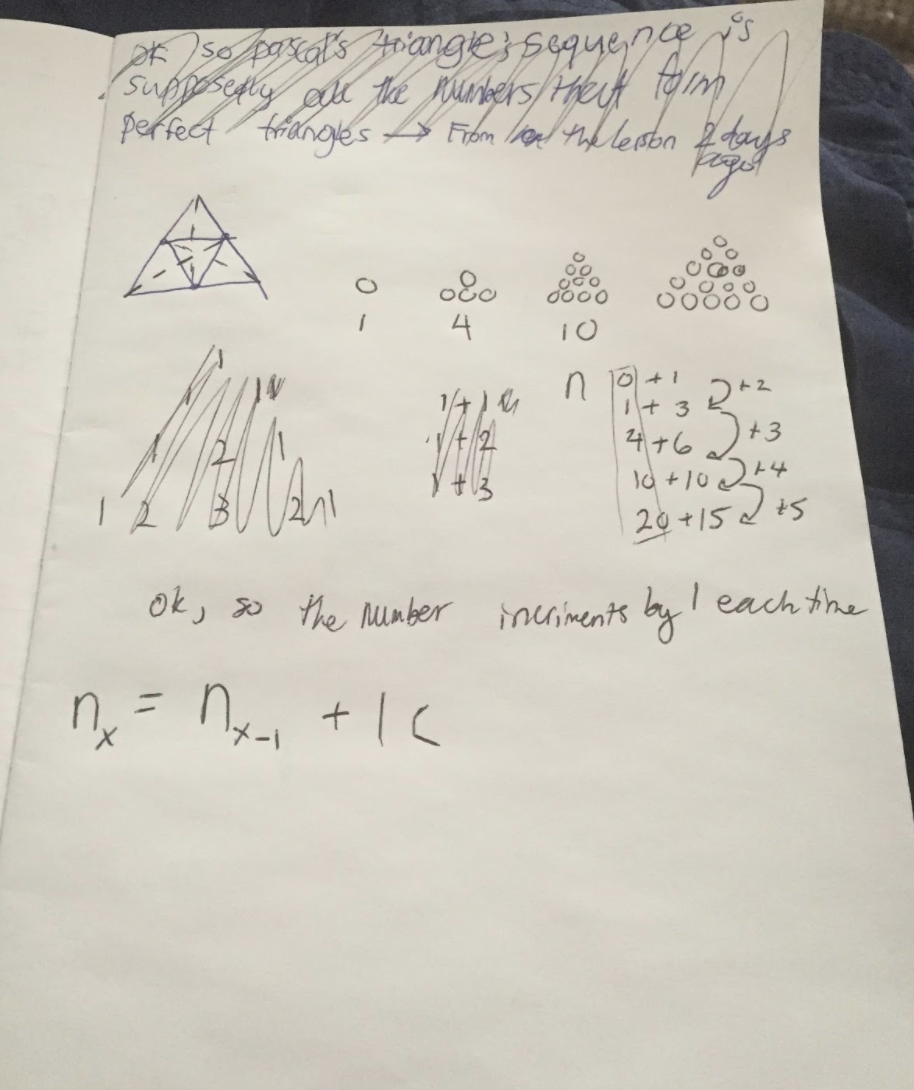 ok so pascal's triangle's sequence is
supposedly all the numbers that form
perfect triangles → From the lesson 2 days
ago
1 4 10
1
1 1
1 2 1
1 2 3 2 1
1 + 1
1 + 2
1 + 3
n 0 + 1 +2
1 + 3 +3
4 + 6 +4
10 + 10 +5
20 + 15
ok, so the number incriments by 1 each time
n_x = n_{x-1} + 1 (